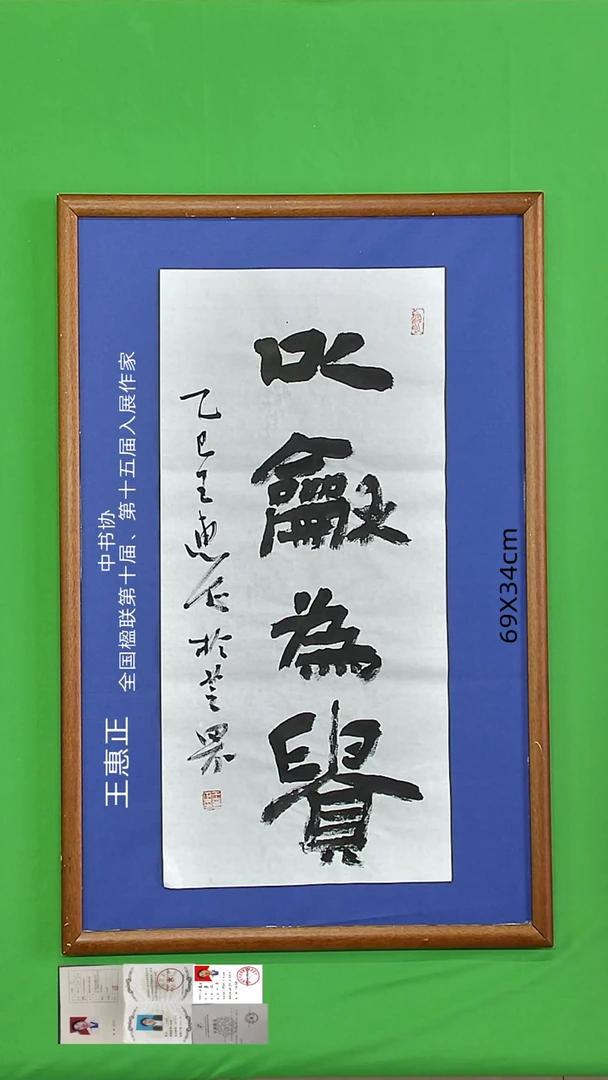 以龢為貴
乙巳王惠正於
中书协
全国楹联第十届、第十五届入展作家
王惠正
69X34cm